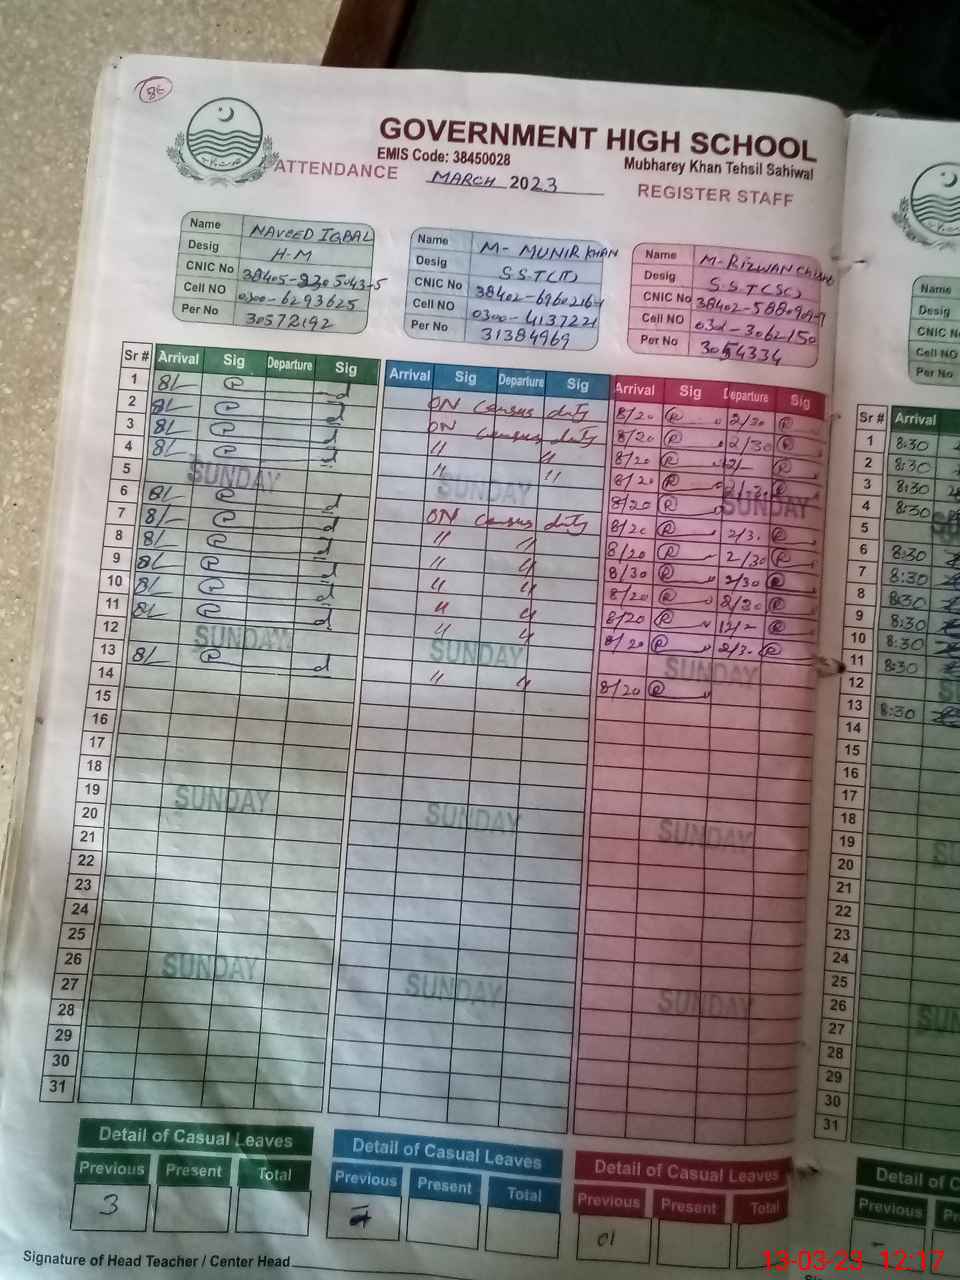 86
GOVERNMENT HIGH SCHOOL
EMIS Code: 38450028
Mubharey Khan Tehsil Sahiwal
ATTENDANCE MARCH 2023 REGISTER STAFF
Name NAVEED IQBAL
Desig H-M
CNIC No
Cell NO 0300-6293625
Per No 30572192
Name M- MUNIR KHAN
Desig S.S.T(IT)
CNIC No
Cell NO 0300-4137221
Per No 31384969
Name M-RIZWAN
Desig S.S.T(SC)
CNIC No
Cell NO
Per No
Name
Desig
CNIC N
Cell N
Per No
Sr # Arrival Sig Departure Sig Arrival Sig Departure Sig Arrival Sig Departure Sig
Sr # Arrival
1 8/-
2 8/- ON Census duty 8/20 2/30
3 8/- ON Census duty 8/20 2/30
4 8/- 〃 〃 8/20 12/-
5 SUNDAY 〃 〃 SUNDAY 8/20 SUNDAY
6 8/- 8/20
7 8/- ON Census duty 8/20 2/3.
8 8/- 〃 〃 8/20 2/30
9 8/- 〃 〃 8/30 2/30
10 8/- 〃 〃 8/20 2/30
11 8/- 〃 〃 8/20 12/-
12 SUNDAY 〃 〃 SUNDAY 8/20 2/3.
13 8/- SUNDAY
14 〃 〃 8/20
15
16
17
18
19 SUNDAY SUNDAY SUNDAY
20
21
22
23
24
25
26 SUNDAY SUNDAY SUNDAY
27
28
29
30
31
1 8:30
2 8:30
3 8:30
4 8:30
5
6 8:30
7 8:30
8 8:30
9 8:30
10 8:30
11 8:30
12
13 8:30
14
15
16
17
18
19
20
21
22
23
24
25
26
27
28
29
30
31
Detail of Casual Leaves
Previous Present Total
3
Detail of Casual Leaves
Previous Present Total
Detail of Casual Leaves
Previous Present Total
01
Detail of C
Previous Pr
Signature of Head Teacher / Center Head
13-03-23 12:17